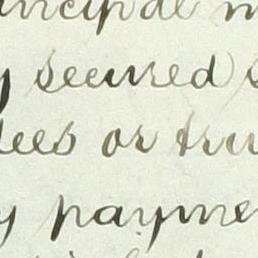 incipal
secured
ees or tru
payme